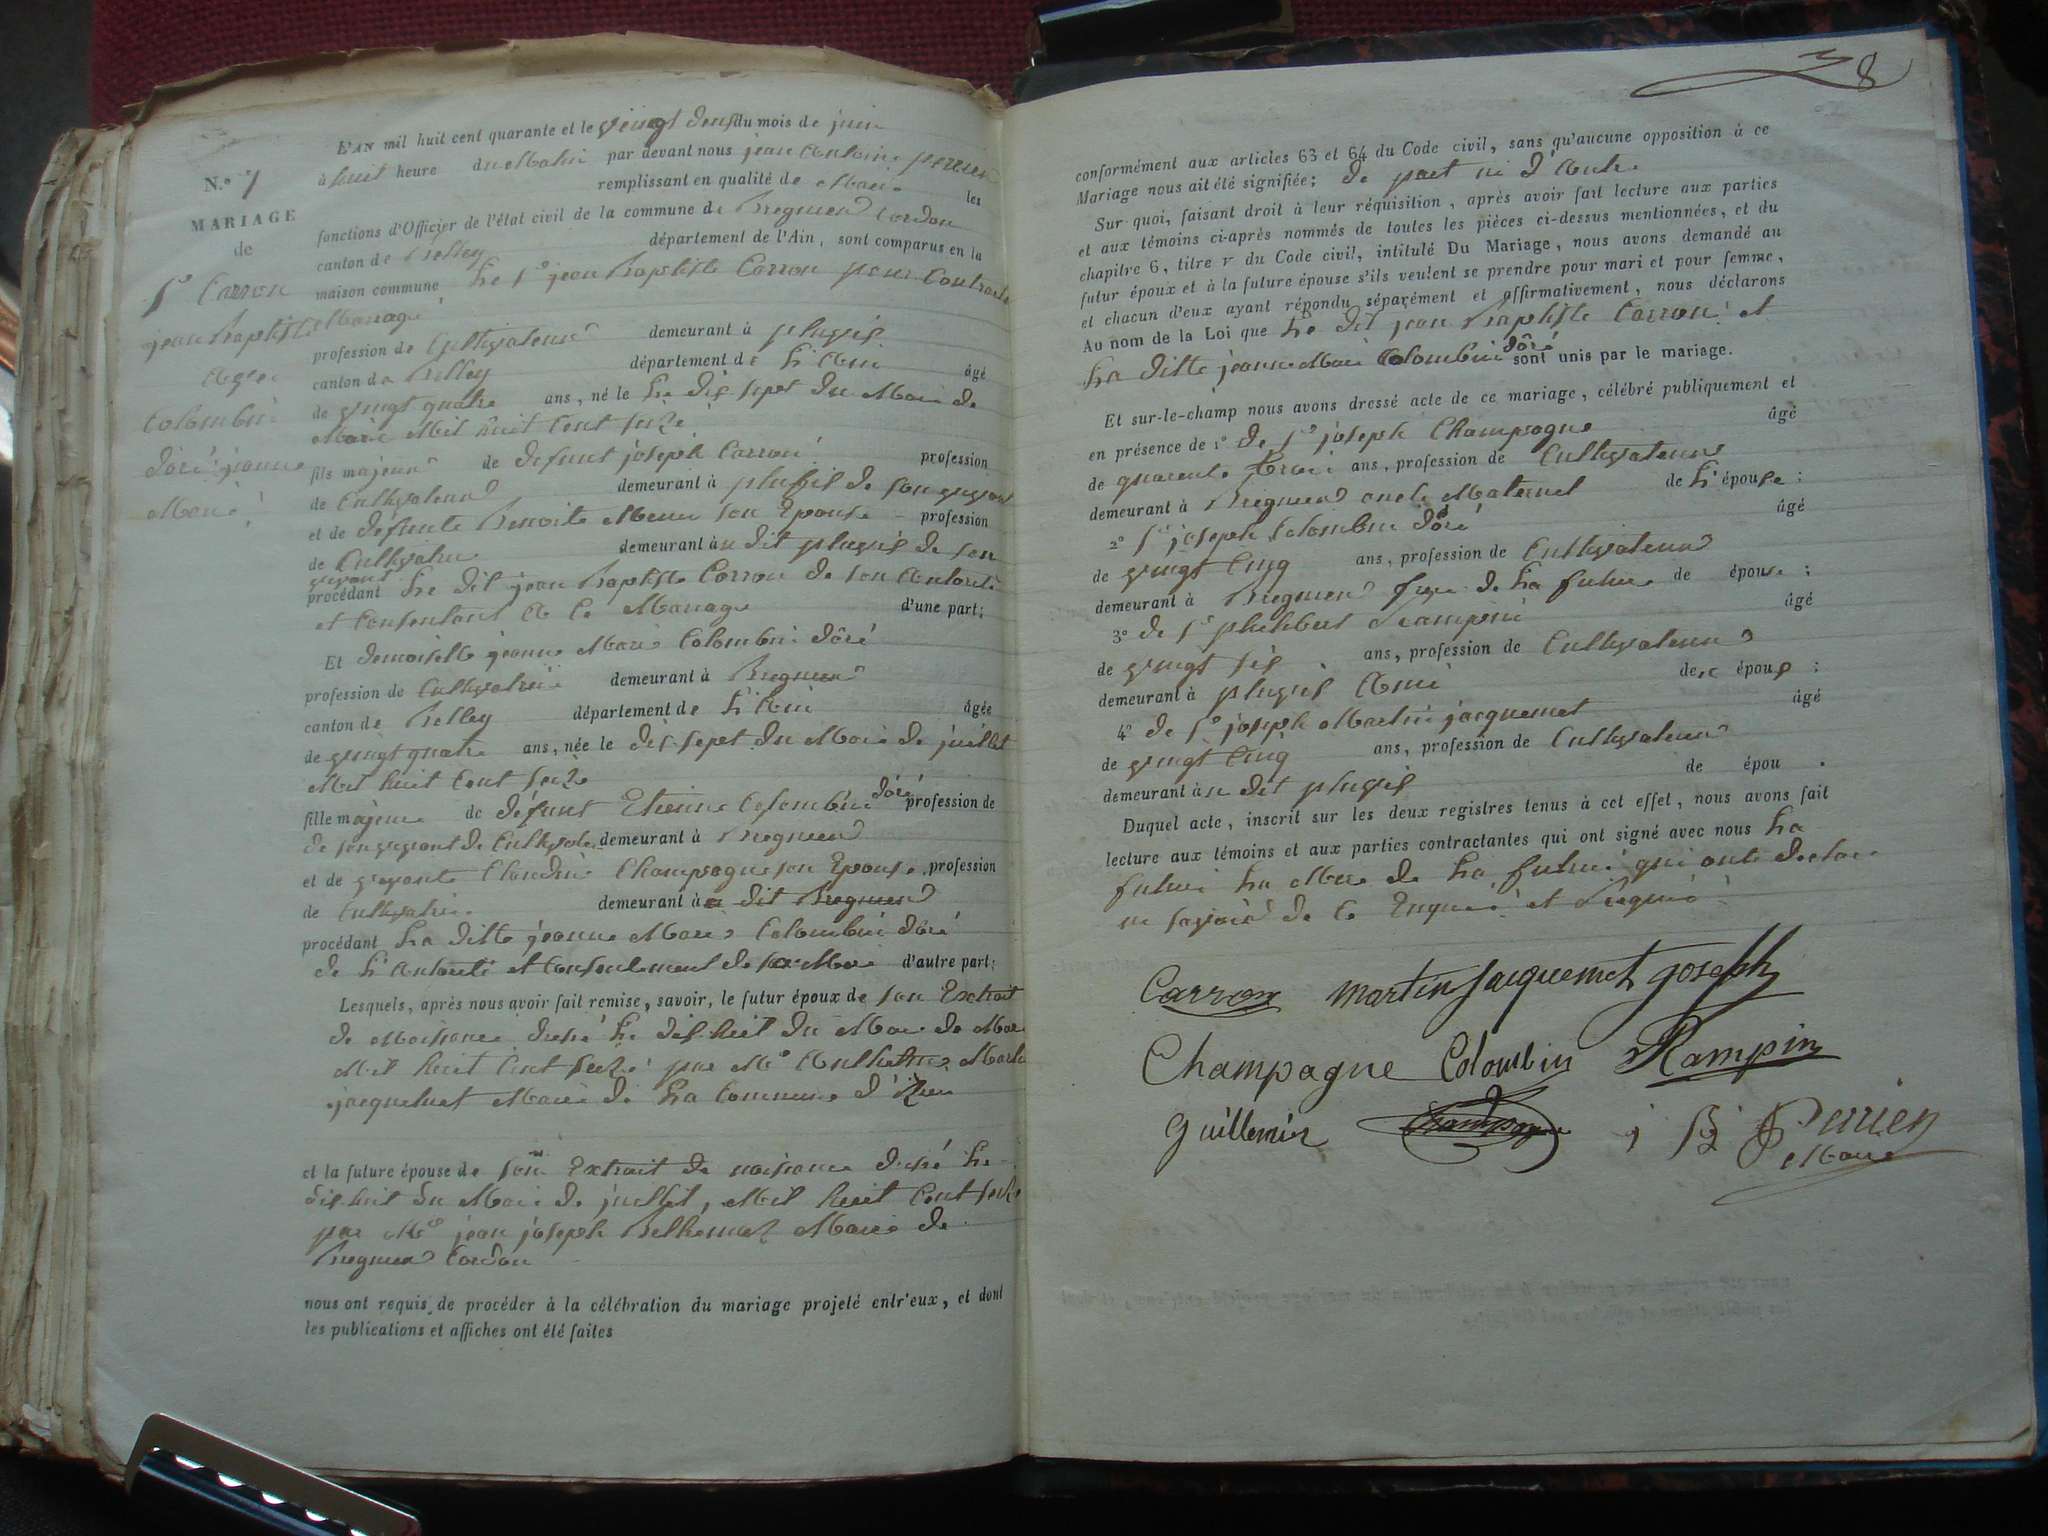 N.º 7
MARIAGE
de
Sr Carron
jean Baptiste
Avec
Colombin
Doré jeanne
Marie
L'AN mil huit cent quarante et le vingt deux du mois de juin
à huit heure du Matin par devant nous jean Antoine perrier
remplissant en qualité de Maire les
fonctions d'Officier de l'état civil de la commune de Bregnier Cordon
canton de Belley département de l'Ain, sont comparus en la
maison commune Le Sr jean Baptiste Carron pour Contracter
Mariage
profession de Cultivateur demeurant à plugis
canton de Belley département de L'Ain âgé
de vingt quatre ans, né le Le dix sept du Mois de
Mars Mil huit Cent seize
fils majeur de defunt joseph Carron profession
de Cultivateur demeurant à de son vivant
et de defunte Benoite son Epouse profession
de Cultivatrice demeurant à u dit plugis de son
vivant
procédant Le dit jean Baptiste Carron de son Autorité
et Consentant A Ce Mariage d'une part;
Et demoiselle jeanne Marie Colombin doré
profession de Cultivatrice demeurant à Bregnier
canton de Belley département de L'Ain âgée
de vingt quatre ans, née le dix sept du Mois de juillet
Mil huit Cent seize
fille majeure de défunt Etienne Colombin doré profession de
de son vivant de Cultivateur demeurant à Bregnier
et de vivante Claudine Champagne son Epouse profession
de Cultivatrice demeurant à u dit Bregnier
procédant La ditte jeanne Marie Colombin doré
de L'Autorité et Consentement de sa Mère d'autre part;
Lesquels, après nous avoir fait remise, savoir, le futur époux de son Extrait
de Naissance dressé Le dix huit du Mois de Mars
Mil huit Cent seize par Mr Anthelme Martin
jacquemet Maire de La Commune d'Izieu
et la future épouse de son Extrait de naissance dressé Le
dix huit du Mois de juillet, Mil huit Cent seize
par Mr jean joseph Belhemaz Maire de
Bregnier Cordon
nous ont requis de procéder à la célébration du mariage projeté entr'eux, et dont
les publications et affiches ont été faites
8
conformément aux articles 63 et 64 du Code civil, sans qu'aucune opposition à ce
Mariage nous ait été signifiée; de part ni d'Autre
Sur quoi, faisant droit à leur réquisition, après avoir fait lecture aux parties
et aux témoins ci-après nommés de toutes les pièces ci-dessus mentionnées, et du
chapitre 6, titre V du Code civil, intitulé Du Mariage, nous avons demandé au
futur époux et à la future épouse s'ils veulent se prendre pour mari et pour femme,
et chacun d'eux ayant répondu séparément et affirmativement, nous déclarons
Au nom de la Loi que Le dit jean Baptiste Carron et
La ditte jeanne Marie Colombin doré sont unis par le mariage.
Et sur-le-champ nous avons dressé acte de ce mariage, célébré publiquement et
en présence de 1º de Sr joseph Champagne âgé
de quarante trois ans, profession de Cultivateur
demeurant à Bregnier oncle Maternel de L'épouse;
2º Sr joseph Colombin doré âgé
de vingt Cinq ans, profession de Cultivateur
demeurant à Bregnier frère de La future de épouse;
3º de Sr philibert Rampin âgé
de vingt six ans, profession de Cultivateur
demeurant à plugis Ami de épous;
4º de Sr joseph Martin jacquemet âgé
de vingt Cinq ans, profession de Cultivateur
demeurant à u dit plugis de épou.
Duquel acte, inscrit sur les deux registres tenus à cet effet, nous avons fait
lecture aux témoins et aux parties contractantes qui ont signé avec nous La
future La Mere de La future qui onts declaré
ne savoir de Ce Enquis et Requis
Carron Martin Jacquemet Joseph
Champagne Colombin Rampin
Guillemin J B Perrier
Maire